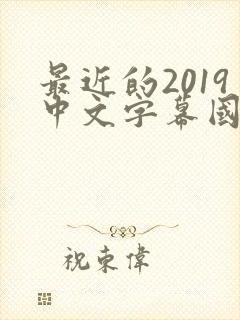 最近的2019
中文字幕國
祝束偉